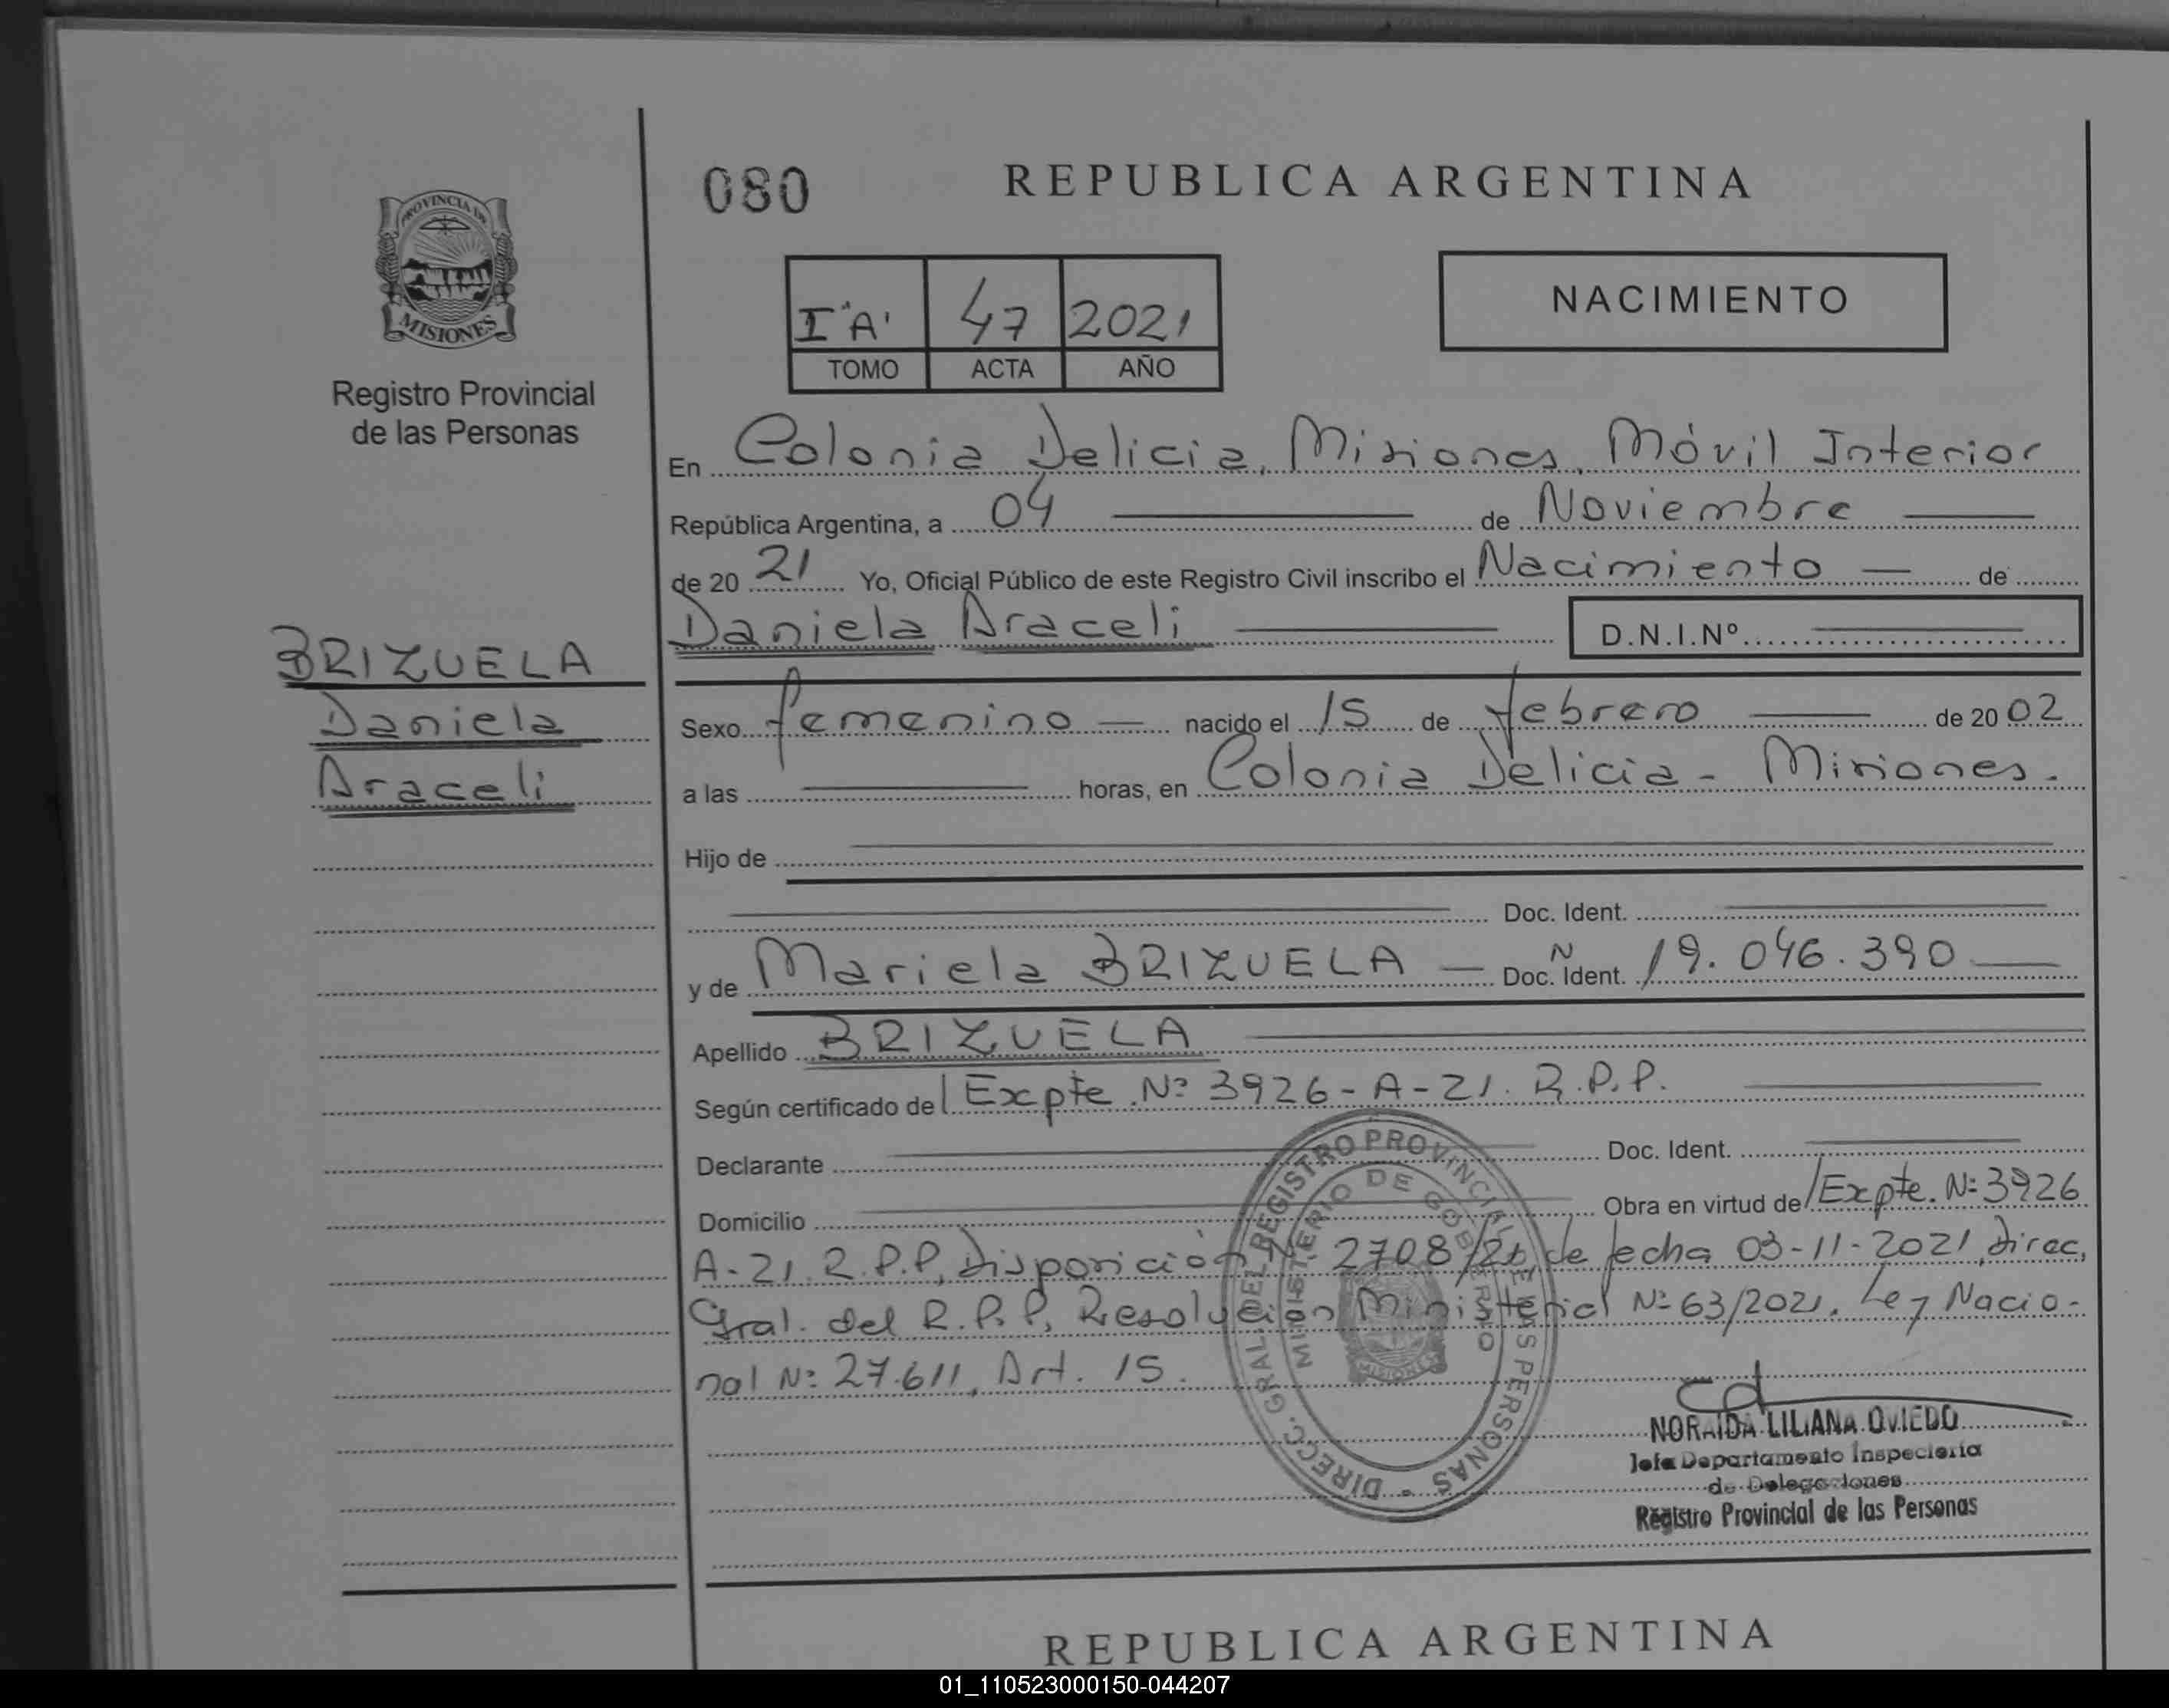 PROVINCIA DE
MISIONES
Registro Provincial
de las Personas
080
REPUBLICA ARGENTINA
I "A" 47 2021
TOMO ACTA AÑO
NACIMIENTO
En Colonia Delicia, Misiones, Móvil Interior
República Argentina, a 04 de Noviembre
de 20 21 Yo, Oficial Público de este Registro Civil inscribo el Nacimiento de
Daniela Araceli D.N.I.Nº
BRIZUELA
Daniela
Araceli
Sexo femenino nacido el 15 de febrero de 20 02
a las horas, en Colonia Delicia - Misiones.
Hijo de
Doc. Ident.
y de Mariela BRIZUELA Doc. N Ident. 19.046.390
Apellido BRIZUELA
Según certificado de Expte. Nº 3926-A-21. R.P.P.
Declarante Doc. Ident.
Domicilio Obra en virtud de Expte. Nº 3926
A-21. R.P.P, Disposición Nº 2708/21, de fecha 03-11-2021, Direc,
Gral. del R.P.P, Resolución Ministerial Nº 63/2021. Ley Nacio-
nal Nº 27.611, Art. 15.
DIRECC. GRAL. DEL REGISTRO PROVINCIAL DE LAS PERSONAS
MINISTERIO DE GOBIERNO
MISIONES
NORAIDA LILIANA OVIEDO
Jefa Departamento Inspectoria
de Delegaciones
Registro Provincial de las Personas
REPUBLICA ARGENTINA
01_110523000150-044207